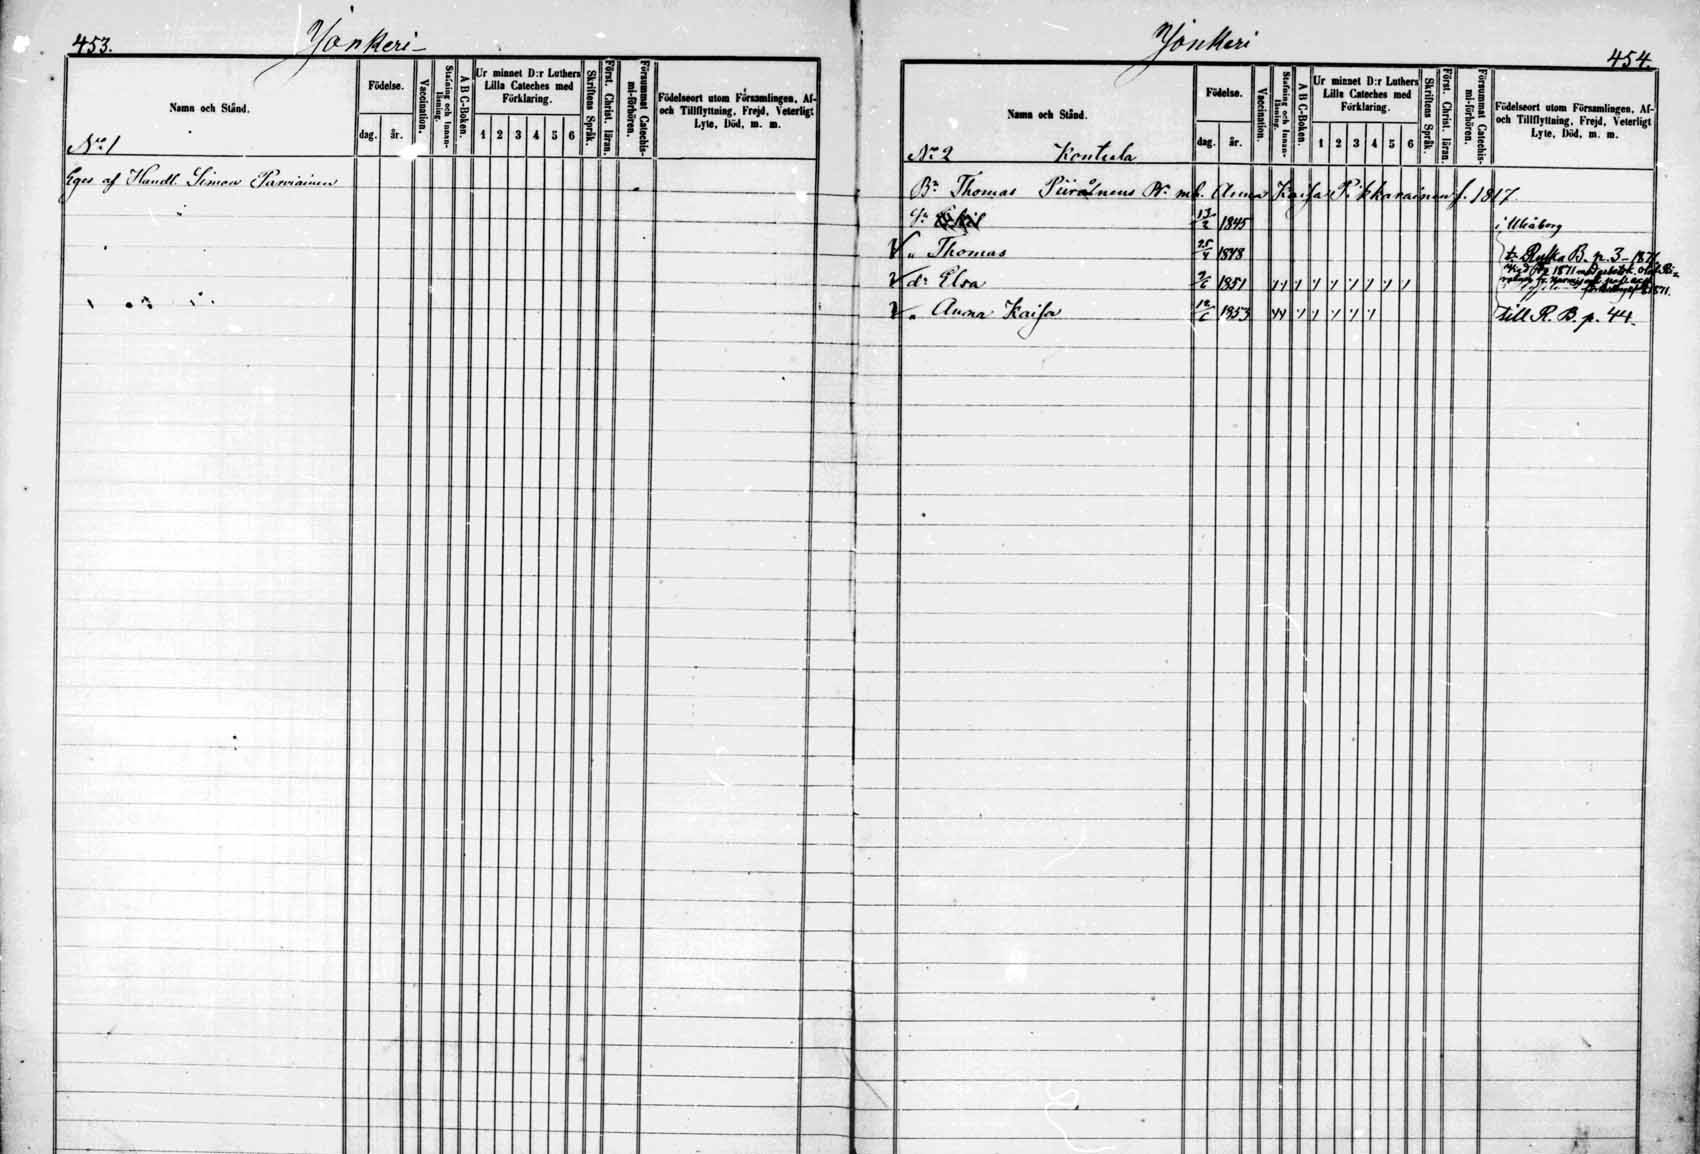 453.
Jonkeri
Namn och Stånd.
Födelse.
dag. år.
Vaccination.
Stafning och Innan-
läsning.
A B C-Boken.
Ur minnet D:r Luthers
Lilla Cateches med
Förklaring.
1 2 3 4 5 6
Skriftens Språk.
Först. Christ. läran.
Försummat Catechis-
mi-förhören.
Födelseort utom Församlingen, Af-
och Tillflyttning, Frejd, Veterligt
Lyte, Död, m. m.
No 1
Eges af Handl. Simon Parviainen
Jonkeri
454.
Namn och Stånd.
Födelse.
dag. år.
Vaccination.
Stafning och Innan-
läsning.
A B C-Boken.
Ur minnet D:r Luthers
Lilla Cateches med
Förklaring.
1 2 3 4 5 6
Skriftens Språk.
Först. Christ. läran.
Försummat Catechis-
mi-förhören.
Födelseort utom Församlingen, Af-
och Tillflyttning, Frejd, Veterligt
Lyte, Död, m. m.
No 2 Kontula
Bn Thomas Piirainens Anna Kaisa Pikkarainen f. 1817
1845 i Uleåborg
" Thomas 25/4 1848 Ruska B. p. 3 - 1871
dr Elsa 2/6 1851
1871
" Anna Kaisa 12/6 1853 till R. B. p. 44.